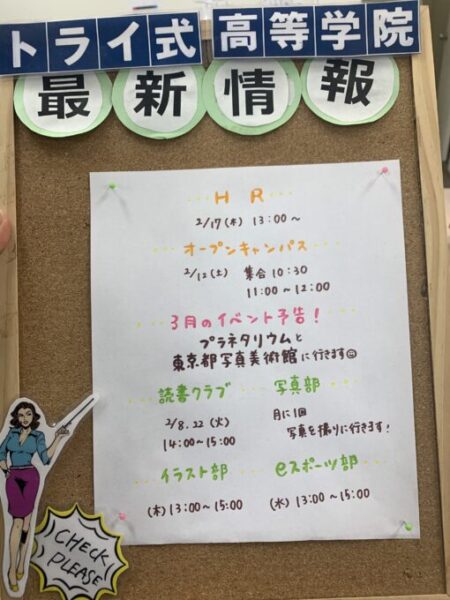 トライ式高等学院
最新情報
HR
2/17(木) 13:00～
オープンキャンパス
2/12(土) 集合10:30
11:00～12:00
3月のイベント予告!
プラネタリウムと
東京都写真美術館に行きます☺
読書クラブ
2/8.22(火)
14:00～15:00
写真部
月に1回
写真を撮りに行きます!
イラスト部
(木)13:00～15:00
eスポーツ部
(水)13:00～15:00
CHECK
PLEASE